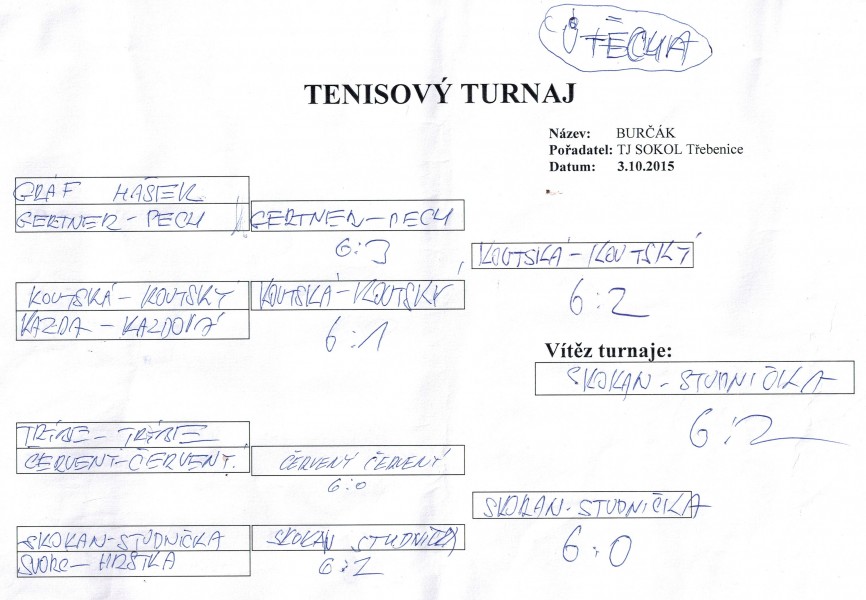 ÚTĚCHA
TENISOVÝ TURNAJ
Název: BURČÁK
Pořadatel: TJ SOKOL Třebenice
Datum: 3.10.2015
GRÁF HAŠEK
GERTNER - PECH
GERTNER - PECH
6:3
KOUTSKÁ - KOUTSKÝ
6:2
KOUTSKÁ - KOUTSKÝ
KAZDA - KAZDOVÁ
KOUTSKÁ - KOUTSKÝ
6:1
Vítěz turnaje:
SKOKAN - STUDNIČKA
6:2
ČERVENÝ - ČERVENÝ
ČERVENÝ ČERVENÝ
6:0
SKOKAN - STUDNIČKA
6:0
SKOKAN - STUDNIČKA
HRSTKA
SKOKAN STUDNIČKA
6:2